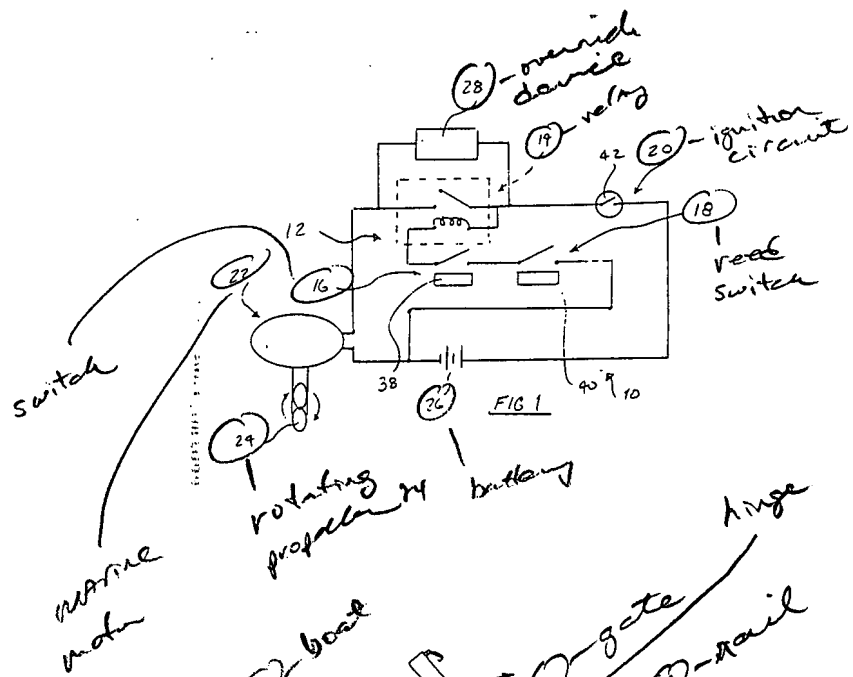 28 - override
device
19 - relay
42
20 - ignition
circuit
12
18
reed
switch
22
16
switch
38
40
10
26
FIG 1
24
rotating
propeller 24
battery
hinge
marine
motor
boat
gate
rail